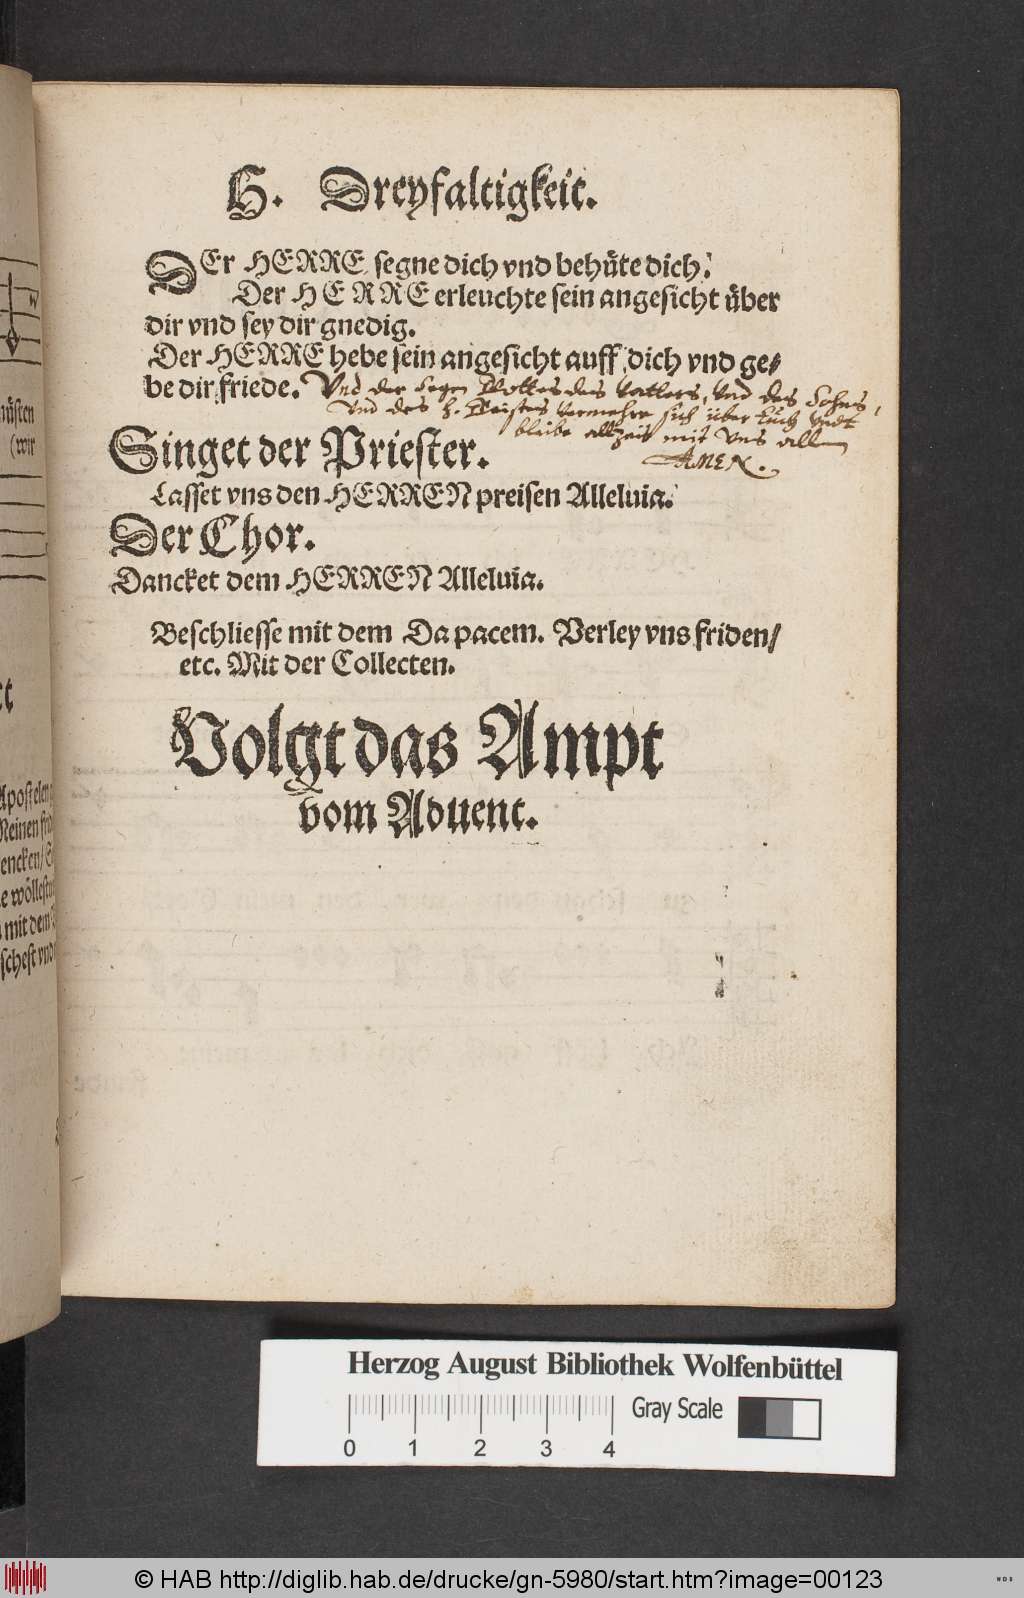 H. Dreyfaltigkeit.
DEr HERRE segne dich vnd behuͤte dich.
Der HERRE erleuchte sein angesicht uͤber
dir vnd sey dir gnedig.
Der HERRE hebe sein angesicht auff dich vnd ge⸗
be dir friede. Vnd der Segen Gottes des Vatters, vnd des Sohns,
vnd des H. Geistes vermehre sich über Euch vndt
bleibe allzeit mit Vns allen
AMEN.
Singet der Priester.
Lasset vns den HERREN preisen Alleluia.
Der Chor.
Dancket dem HERREN Alleluia.
Beschliesse mit dem Da pacem. Verley vns friden/
etc. Mit der Collecten.
Volgt das Ampt
vom Aduent.
nuͤsten
(wir
Apostelen
Meinen
encken/
e woͤlles
mit dem
schest vnd
Herzog August Bibliothek Wolfenbüttel
Gray Scale
0 1 2 3 4
© HAB http://diglib.hab.de/drucke/gn-5980/start.htm?image=00123